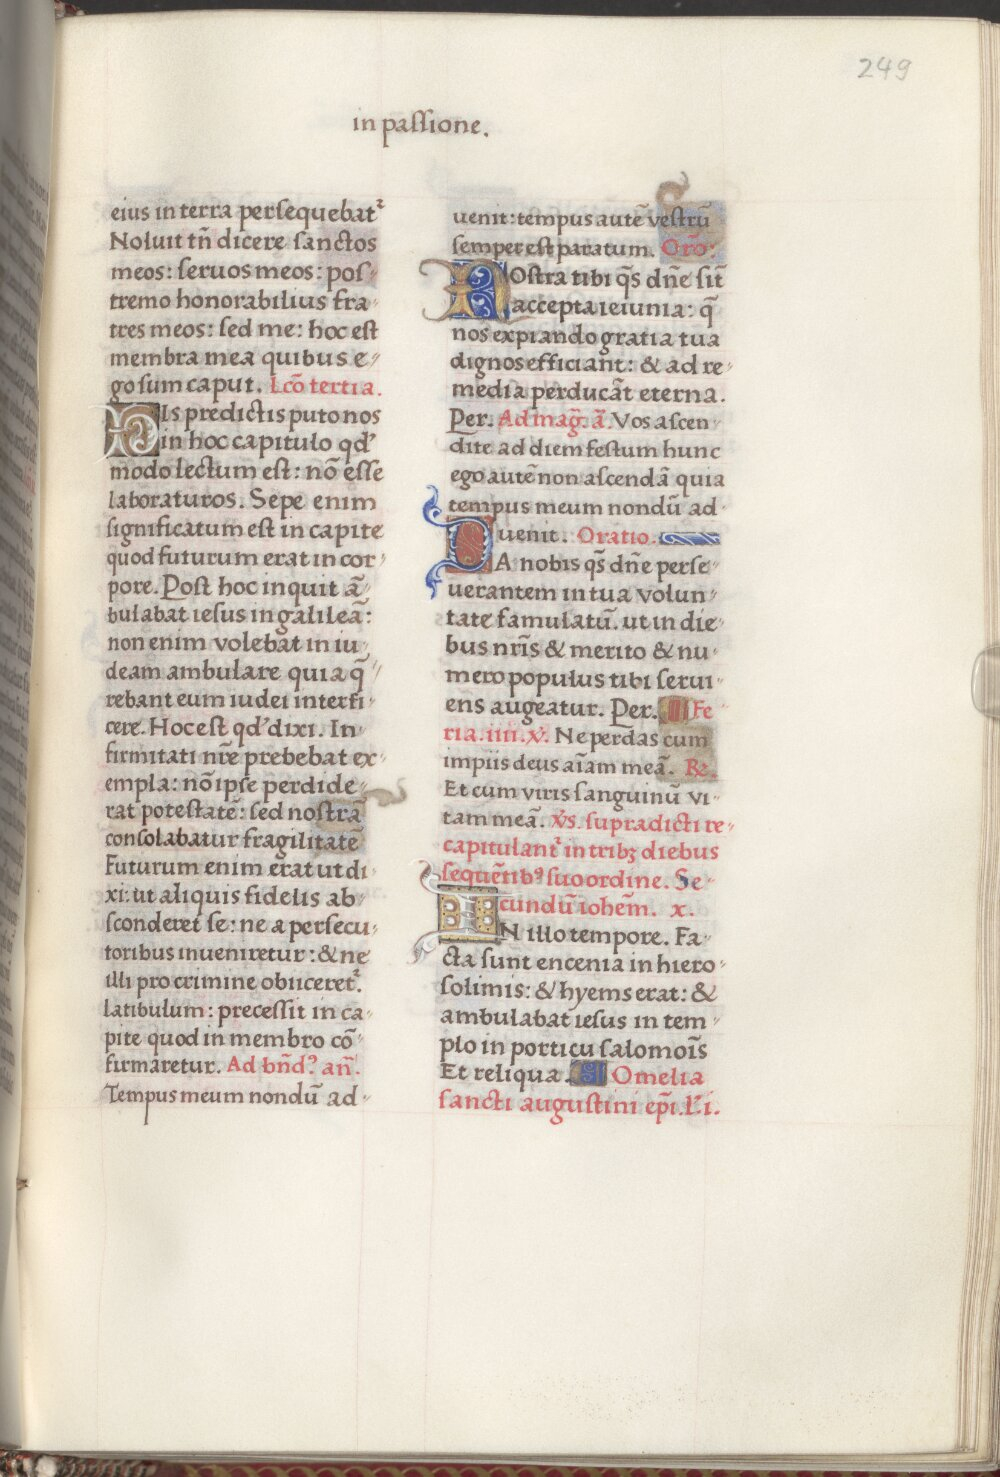 249
in passione.
eius in terra persequebat᷑
Noluit tn̄ dicere sanctos
meos: seruos meos: pos-
tremo honorabilius fra-
tres meos: sed me: hoc est
membra mea quibus e-
go sum caput. Lcō tertia.
HIs predictis puto nos
in hoc capitulo qd'
modo lectum est: nō esse
laboraturos. Sepe enim
significatum est in capite
quod futurum erat in cor-
pore. Post hoc inquit ā-
bulabat iesus in galileā:
non enim volebat in iu-
deam ambulare quia q̄-
rebant eum iudei interfi-
cere. Hoc est qd' dixi. In-
firmitati nr̄e prebebat ex-
empla: nō ipse perdide-
rat potestatē: sed nostrā
consolabatur fragilitatē
Futurum enim erat ut di-
xi: ut aliquis fidelis ab-
sconderet se: ne a persecu-
toribus inueniretur: & ne
illi pro crimine obiiceret᷑.
latibulum: precessit in ca-
pite quod in membro cō-
firmaretur. Ad bn̄d.ꝰ an̄.
Tempus meum nondū ad-
uenit: tempus autē vestrū
semper est paratum. Orō:
NOstra tibi qs̄ dn̄e sīt
accepta ieiunia: q̄
nos expiando gratia tua
dignos efficiānt: & ad re-
media perducāt eterna.
Per. Ad maḡ. ā. Vos ascen-
dite ad diem festum hunc
ego autē non ascendā quia
tempus meum nondū ad-
uenit. Oratio.
DA nobis qs̄ dn̄e perse-
uerantem in tua volun-
tate famulatū. ut in die-
bus nr̄is & merito & nu-
mero populus tibi serui-
ens augeatur. Per. Fe
ria.iiii.v̄. Ne perdas cum
impiis deus aīam meā. R̄.
Et cum viris sanguinū vi-
tam meā. v̄s. supradicti re-
capitulant᷑ in tribꝫ diebus
sequētibꝰ suo ordine. Se-
cundū iohēm. x.
IN illo tempore. Fa-
cta sunt encenia in hiero-
solimis: & hyems erat: &
ambulabat iesus in tem-
plo in porticu salomoīs
Et reliqua. Omelia
sancti augustini ep̄i. L'.i.